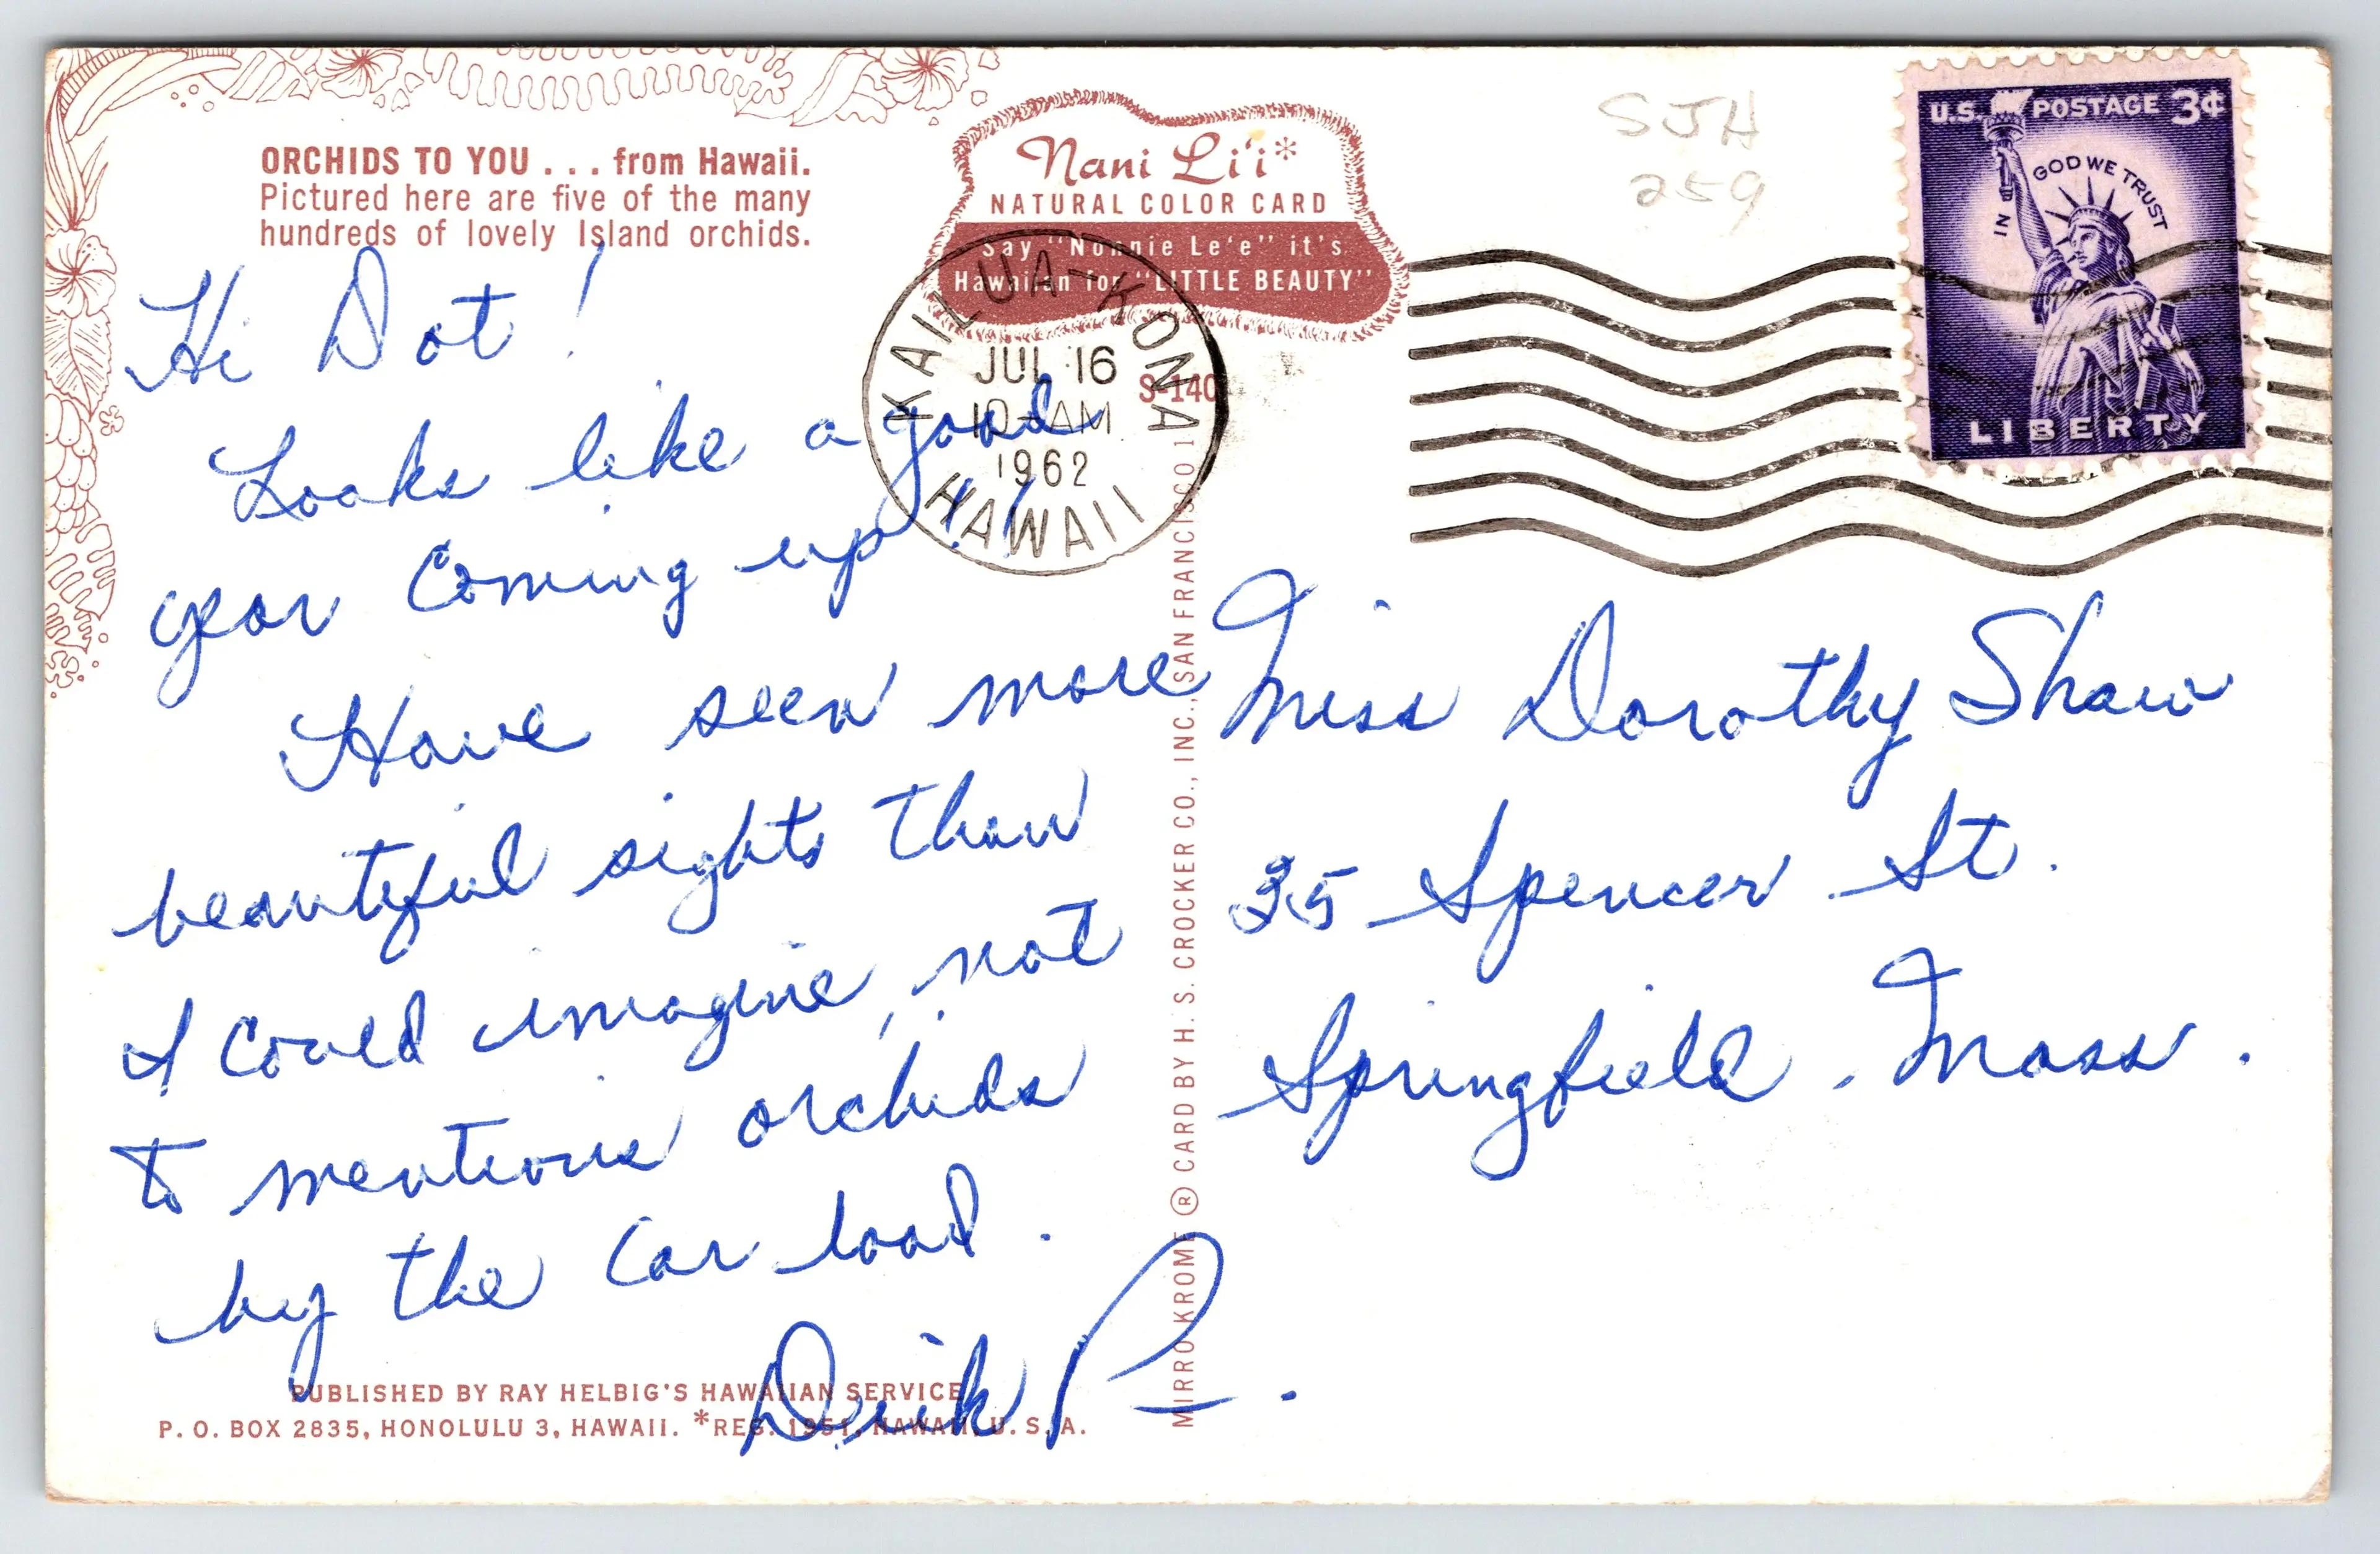 ORCHIDS TO YOU . . . from Hawaii.
Pictured here are five of the many
hundreds of lovely Island orchids.
Nani Li'i*
NATURAL COLOR CARD
Say "Nonnie Le'e" it's
Hawaiian for "LITTLE BEAUTY"
S-140
SJH
259
U.S. POSTAGE 3¢
IN GOD WE TRUST
LIBERTY
KAILUA-KONA
JUL 16
10-AM
1962
HAWAII
Hi Dot!
Looks like a good
year coming up!!
Have seen more
beautiful sights than
I could imagine, not
to mention orchids
by the car load.
Dick P.
Miss Dorothy Shaw
35 Spencer St.
Springfield, Mass.
PUBLISHED BY RAY HELBIG'S HAWAIIAN SERVICE
P. O. BOX 2835, HONOLULU 3, HAWAII. *REG. 1951, HAWAII, U. S. A.
MIRRO-KROME ® CARD BY H. S. CROCKER CO., INC., SAN FRANCISCO 1